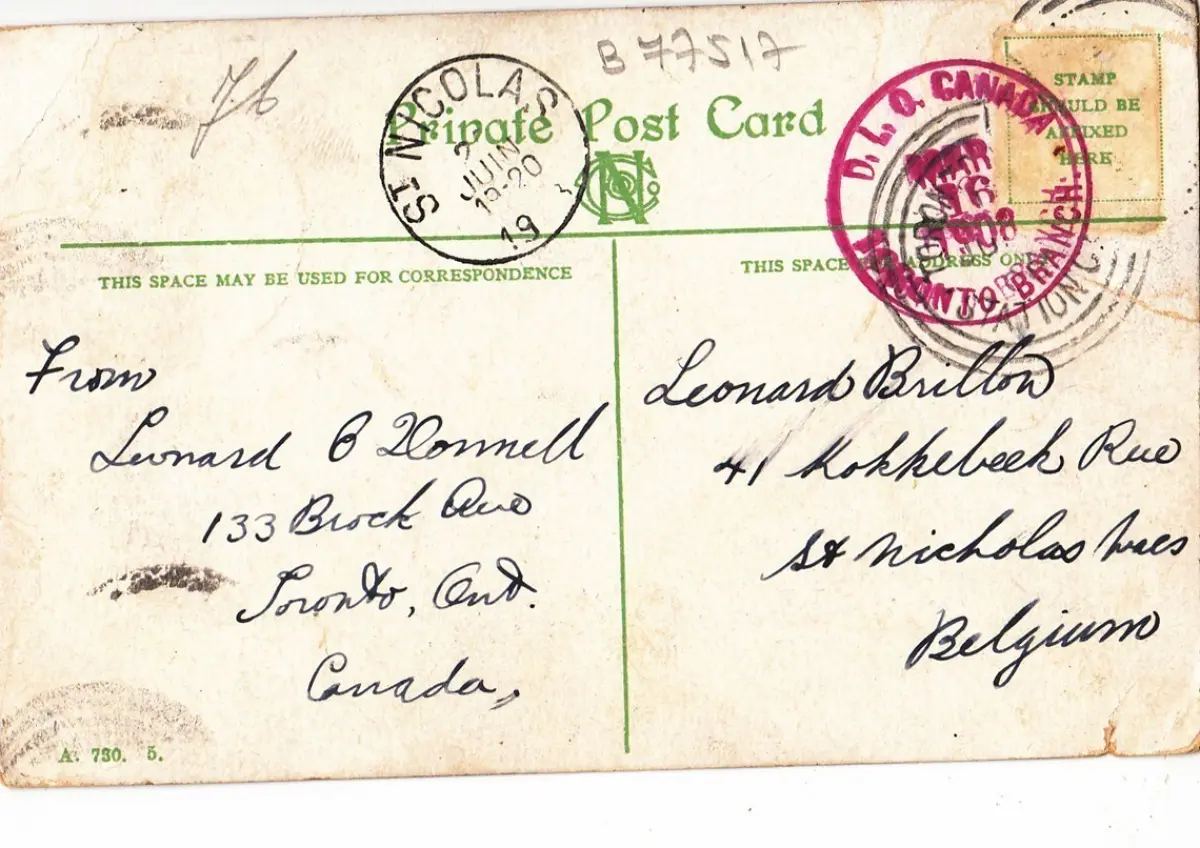 B 77517
76
Private Post Card
ST NICOLAS
2
JUIN
18-20
19
D. L. O. CANADA
MAR
16
1908
TORONTO BRANCH
STATION C
STAMP
SHOULD BE
AFFIXED
HERE
THIS SPACE MAY BE USED FOR CORRESPONDENCE
THIS SPACE ADDRESS ONLY
From
Leonard O Donnell
133 Brock Ave
Toronto, Ont.
Canada,
Leonard Brillon
41 Kokkebeek Rue
St Nicholas Waes
Belgium
A. 730. 5.